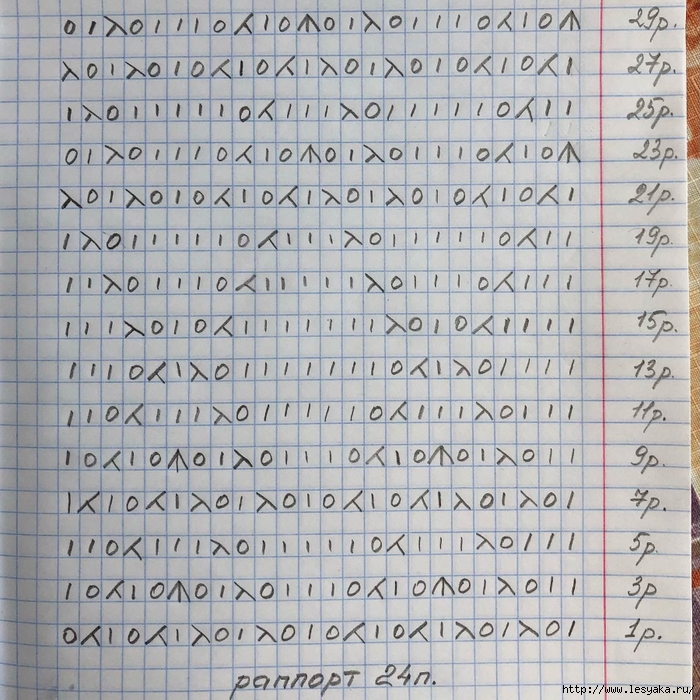 0 1 λ 0 1 1 1 0 ⅄ 1 0 ↑ 0 1 λ 0 1 1 1 0 ⅄ 1 0 ↑ 29р.
λ 0 1 λ 0 1 0 ⅄ 1 0 ⅄ 1 λ 0 1 λ 0 1 0 ⅄ 1 0 ⅄ 1 27р.
1 λ 0 1 1 1 1 1 0 ⅄ 1 1 1 λ 0 1 1 1 1 1 0 ⅄ 1 1 25р.
0 1 λ 0 1 1 1 0 ⅄ 1 0 ↑ 0 1 λ 0 1 1 1 0 ⅄ 1 0 ↑ 23р.
λ 0 1 λ 0 1 0 ⅄ 1 0 ⅄ 1 λ 0 1 λ 0 1 0 ⅄ 1 0 ⅄ 1 21р.
1 λ 0 1 1 1 1 1 0 ⅄ 1 1 1 λ 0 1 1 1 1 1 0 ⅄ 1 1 19р.
1 1 λ 0 1 1 1 0 ⅄ 1 1 1 1 1 λ 0 1 1 1 0 ⅄ 1 1 1 17р.
1 1 1 λ 0 1 0 ⅄ 1 1 1 1 1 1 1 λ 0 1 0 ⅄ 1 1 1 1 15р.
1 1 1 0 ⅄ 1 λ 0 1 1 1 1 1 1 1 0 ⅄ 1 λ 0 1 1 1 1 13р.
1 1 0 ⅄ 1 1 1 λ 0 1 1 1 1 1 0 ⅄ 1 1 1 λ 0 1 1 1 11р.
1 0 ⅄ 1 0 ↑ 0 1 λ 0 1 1 1 0 ⅄ 1 0 ↑ 0 1 λ 0 1 1 9р.
1 ⅄ 1 0 ⅄ 1 λ 0 1 λ 0 1 0 ⅄ 1 0 ⅄ 1 λ 0 1 λ 0 1 7р.
1 1 0 ⅄ 1 1 1 λ 0 1 1 1 1 1 0 ⅄ 1 1 1 λ 0 1 1 1 5р.
1 0 ⅄ 1 0 ↑ 0 1 λ 0 1 1 1 0 ⅄ 1 0 ↑ 0 1 λ 0 1 1 3р
0 ⅄ 1 0 ⅄ 1 λ 0 1 λ 0 1 0 ⅄ 1 0 ⅄ 1 λ 0 1 λ 0 1 1р.
раппорт 24п.
http://www.lesyaka.ru/